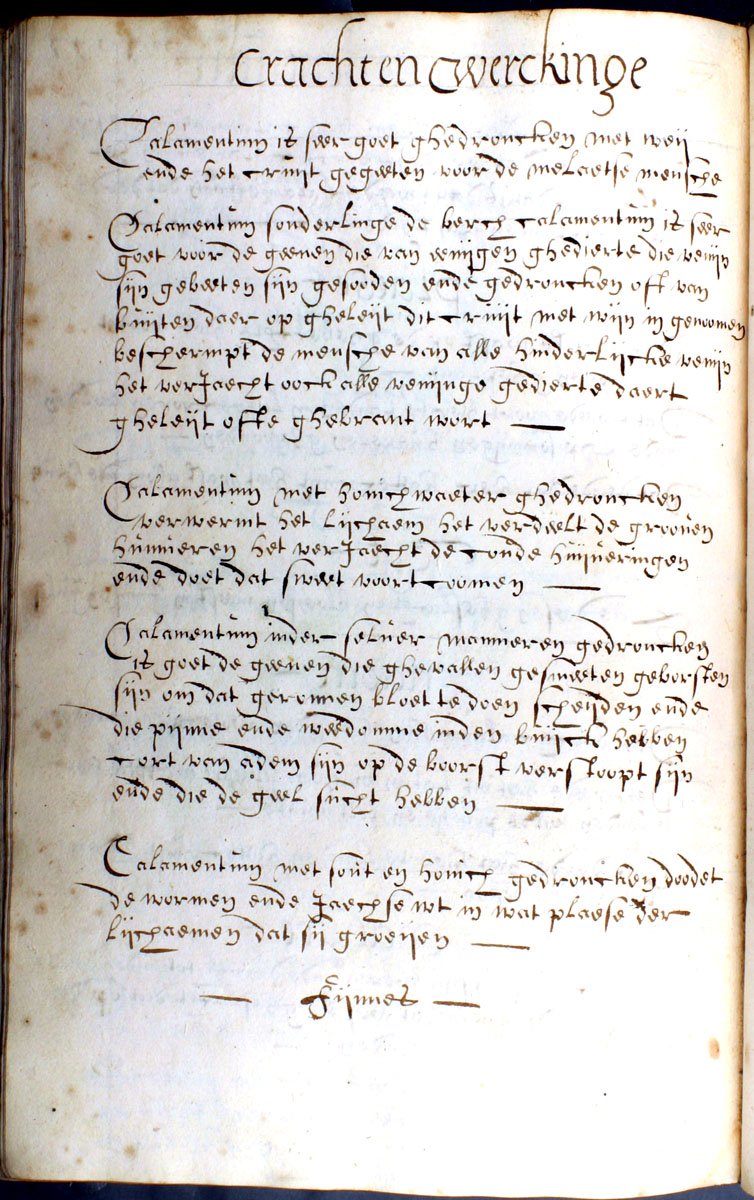 Crachten werckinge
Calamentum is seer goet ghedroncken met weij
ende het cruijt gegeeten voor de melaetse mensche
Calamentum sonderlinge de berch calamentum is seer
goet voor de geenen die van eenijgen ghedierte die venijn
sijn gebeeten sijn gesooden ende gedroncken oft van
buijten daer op gheleijt dit cruijt met wijn in genoomen
beschermpt de mensche van alle hinderlijcke venijn
het verJaecht oock alle venijnge gedierte daert
gheleijt ofte ghebrant wort
Calamentum met honichwaeter ghedroncken
verwermt het lijchaem het verdeelt de grooven
humueren het verJaecht de coude huijveringen
ende doet dat sweet voort coomen
Calamentum inder selver mannieren gedroncken
is goet de geenen die ghevallen gesmeeten geborsten
sijn om dat geronnen bloet te doen scheijden ende
die pijnne ende weedomme inden buijck hebben
cort van adem sijn op de boorst verstoopt sijn
ende die de geel sucht hebben
Calamentum met sout en honich gedroncken doodet
de wormen ende Jaechse wt in wat plaese der
lijchaemen dat sij groeijen
Fijnnes